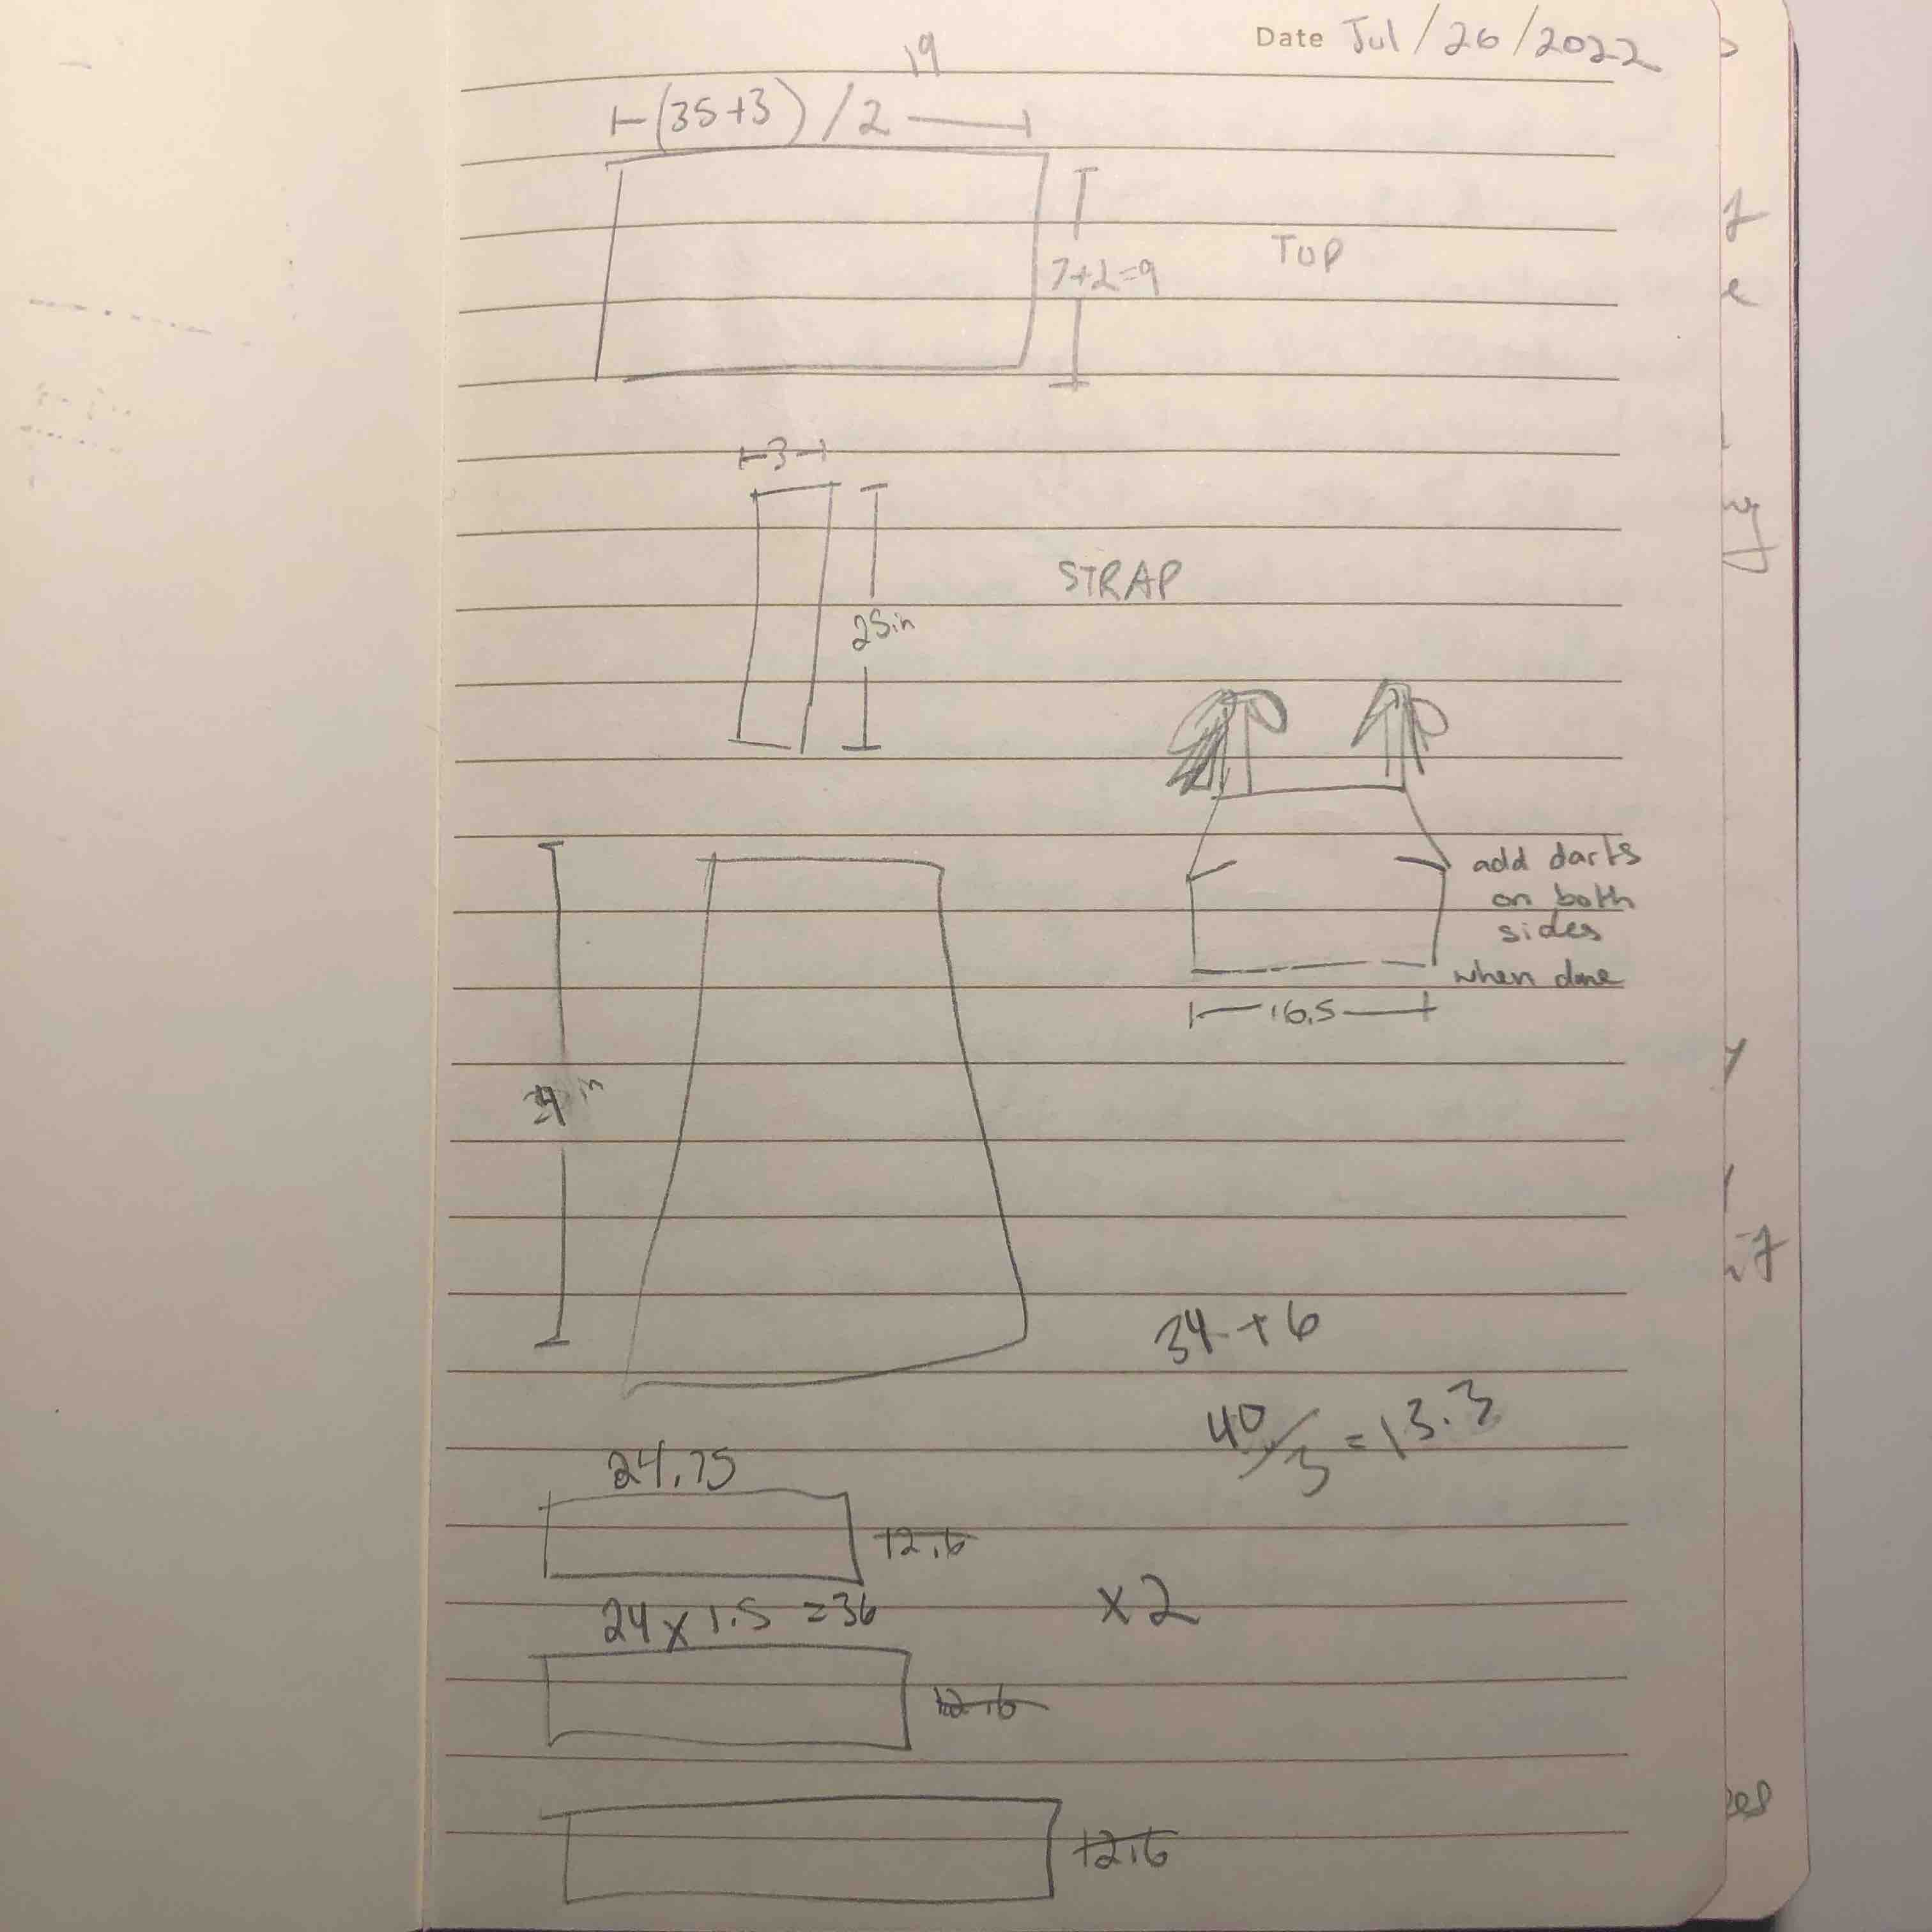 Date Jul/26/2022
19
(35+3)/2
7+2=9
TOP
3
STRAP
25in
add darts
on both
sides
when done
16.5
34 in
34+6
40/3 = 13.3
24.75
12.6
24 x 1.5 = 36
x2
12.6
12.6